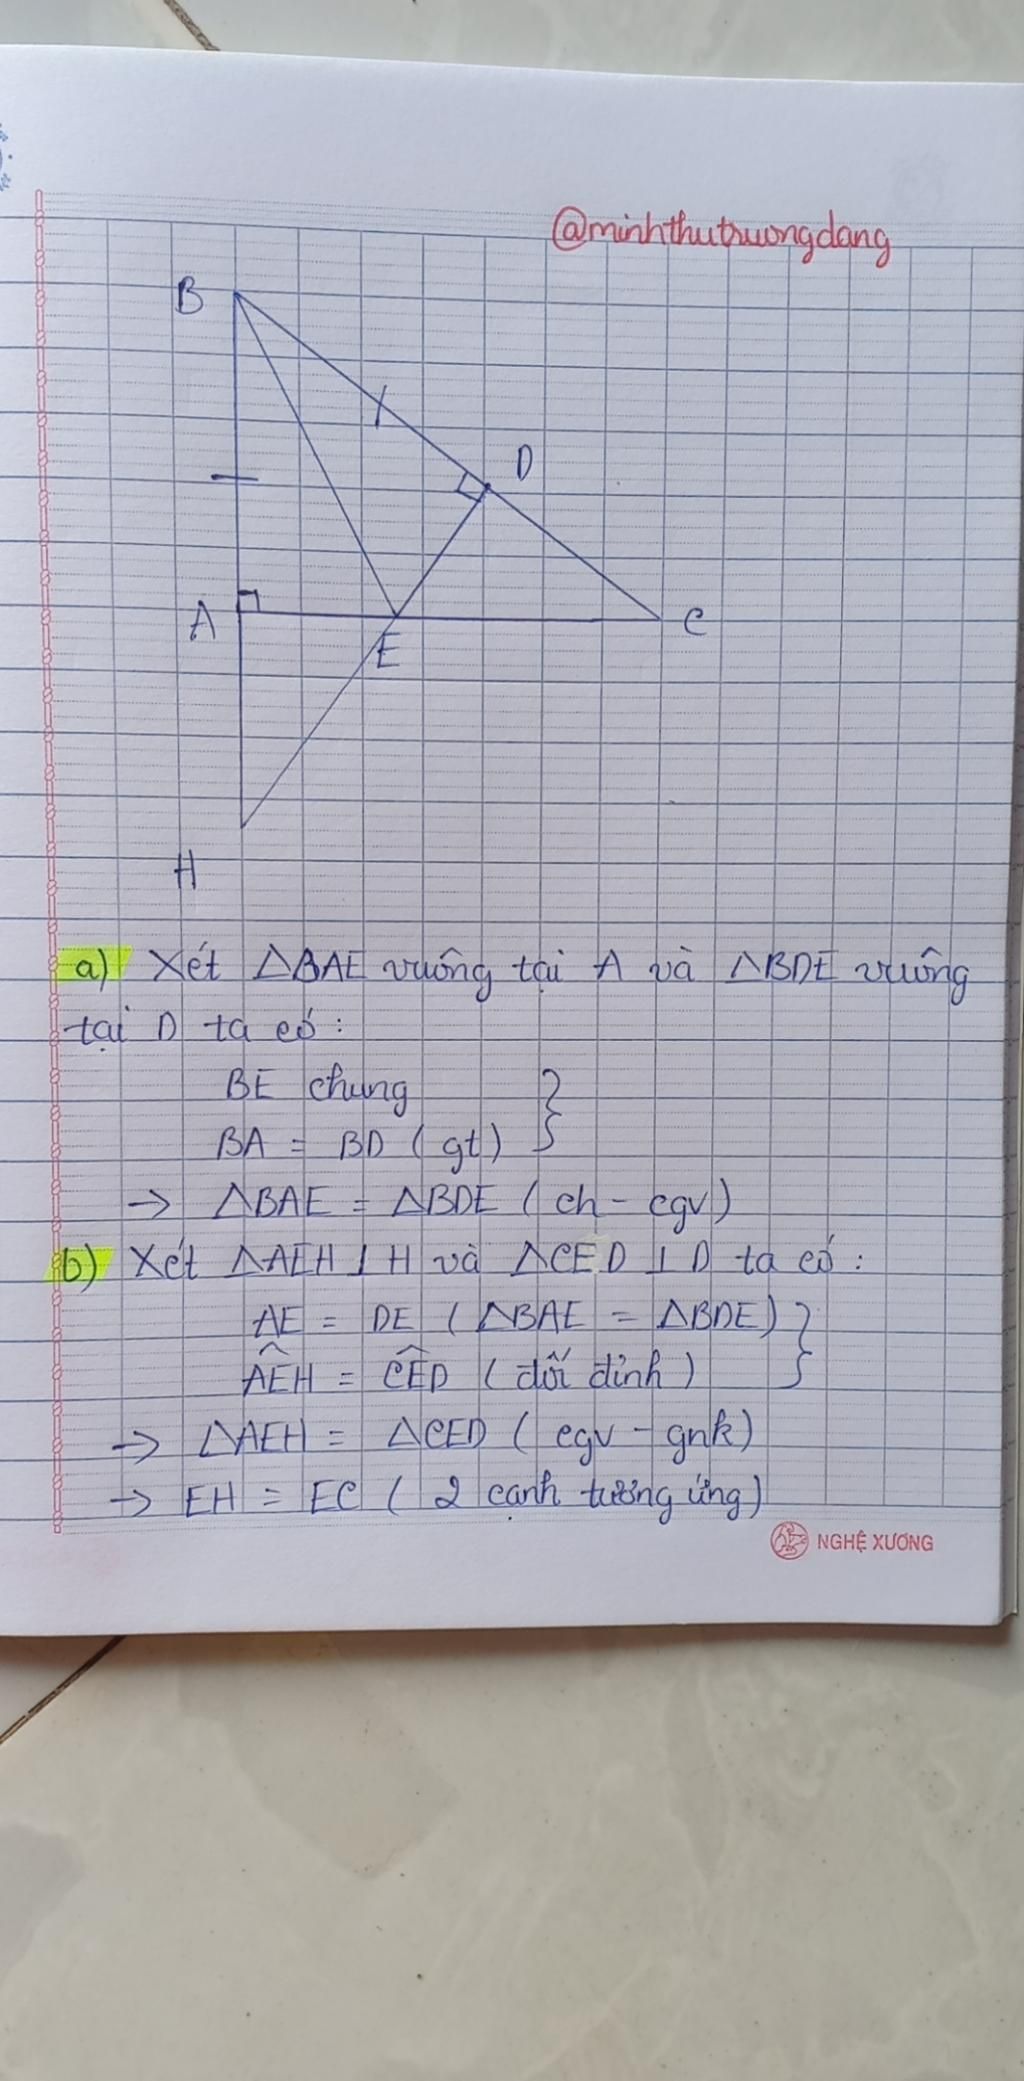 @minhthutruongdang
B
D
A
E
C
H
a) Xét △BAE vuông tại A và △BDE vuông
tại D ta có :
BE chung
BA = BD ( gt ) }
→ △BAE = △BDE ( ch - cgv )
b) Xét △AEH ⊥ H và △CED ⊥ D ta có :
AE = DE ( △BAE = △BDE ) }
AÊH = CÊD ( đối đỉnh )
→ △AEH = △CED ( cgv - gnk )
→ EH = EC ( 2 cạnh tương ứng )
NGHỆ XƯƠNG